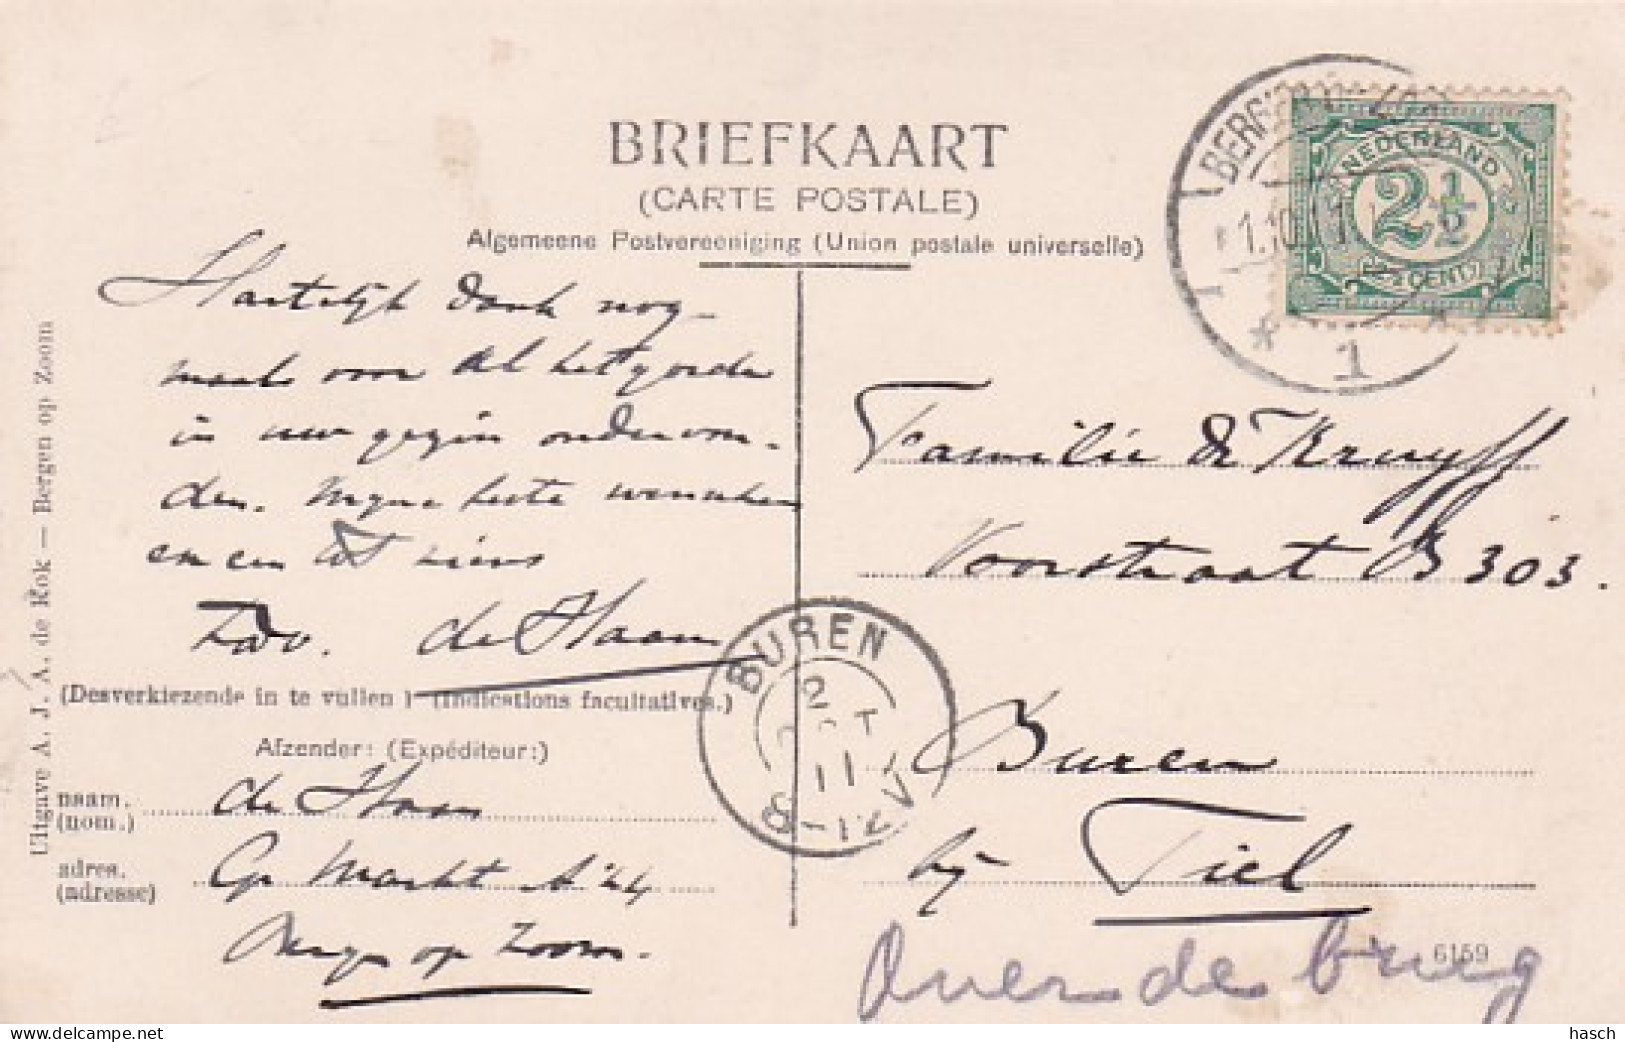 BRIEFKAART
(CARTE POSTALE)
Algemeene Postvereeniging (Union postale universelle)
NEDERLAND
2½
CENT
1
Hartelijk dank nog-
maals voor al het goede
in uw gezin ondervon-
den. Mijne beste wenschen
en een tot ziens
de Haan
(Desverkiezende in te vullen) (Indications facultatives.)
Afzender: (Expéditeur:)
naam. de Haan
(nom.)
adres. Gr Markt A 44
(adresse)
Bergen op Zoom.
Uitgave A. J. A. de Kok — Bergen op Zoom
BUREN
2
OCT
11
8-12V
Familie de Kruyff
Voorstraat B 303.
Buren
bij Tiel
Over de brug
6159
www.delcampe.net
hasch